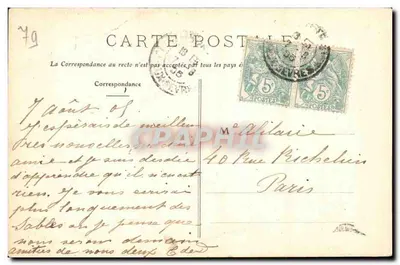 79
CARTE POSTALE
La Correspondance au recto n'est pas acceptée par tous les pays
Correspondance
7 Août 05
J'espérais de meilleu
res nouvelles
amie et je suis désolée
d'apprendre qu'il n'en est
rien. Je vous écrirai
plus longuement des
Sables où je pense que
nous serons demain
amitiés de nous deux
M
40 Rue Richelieu
Paris
5
5
CARTORUM